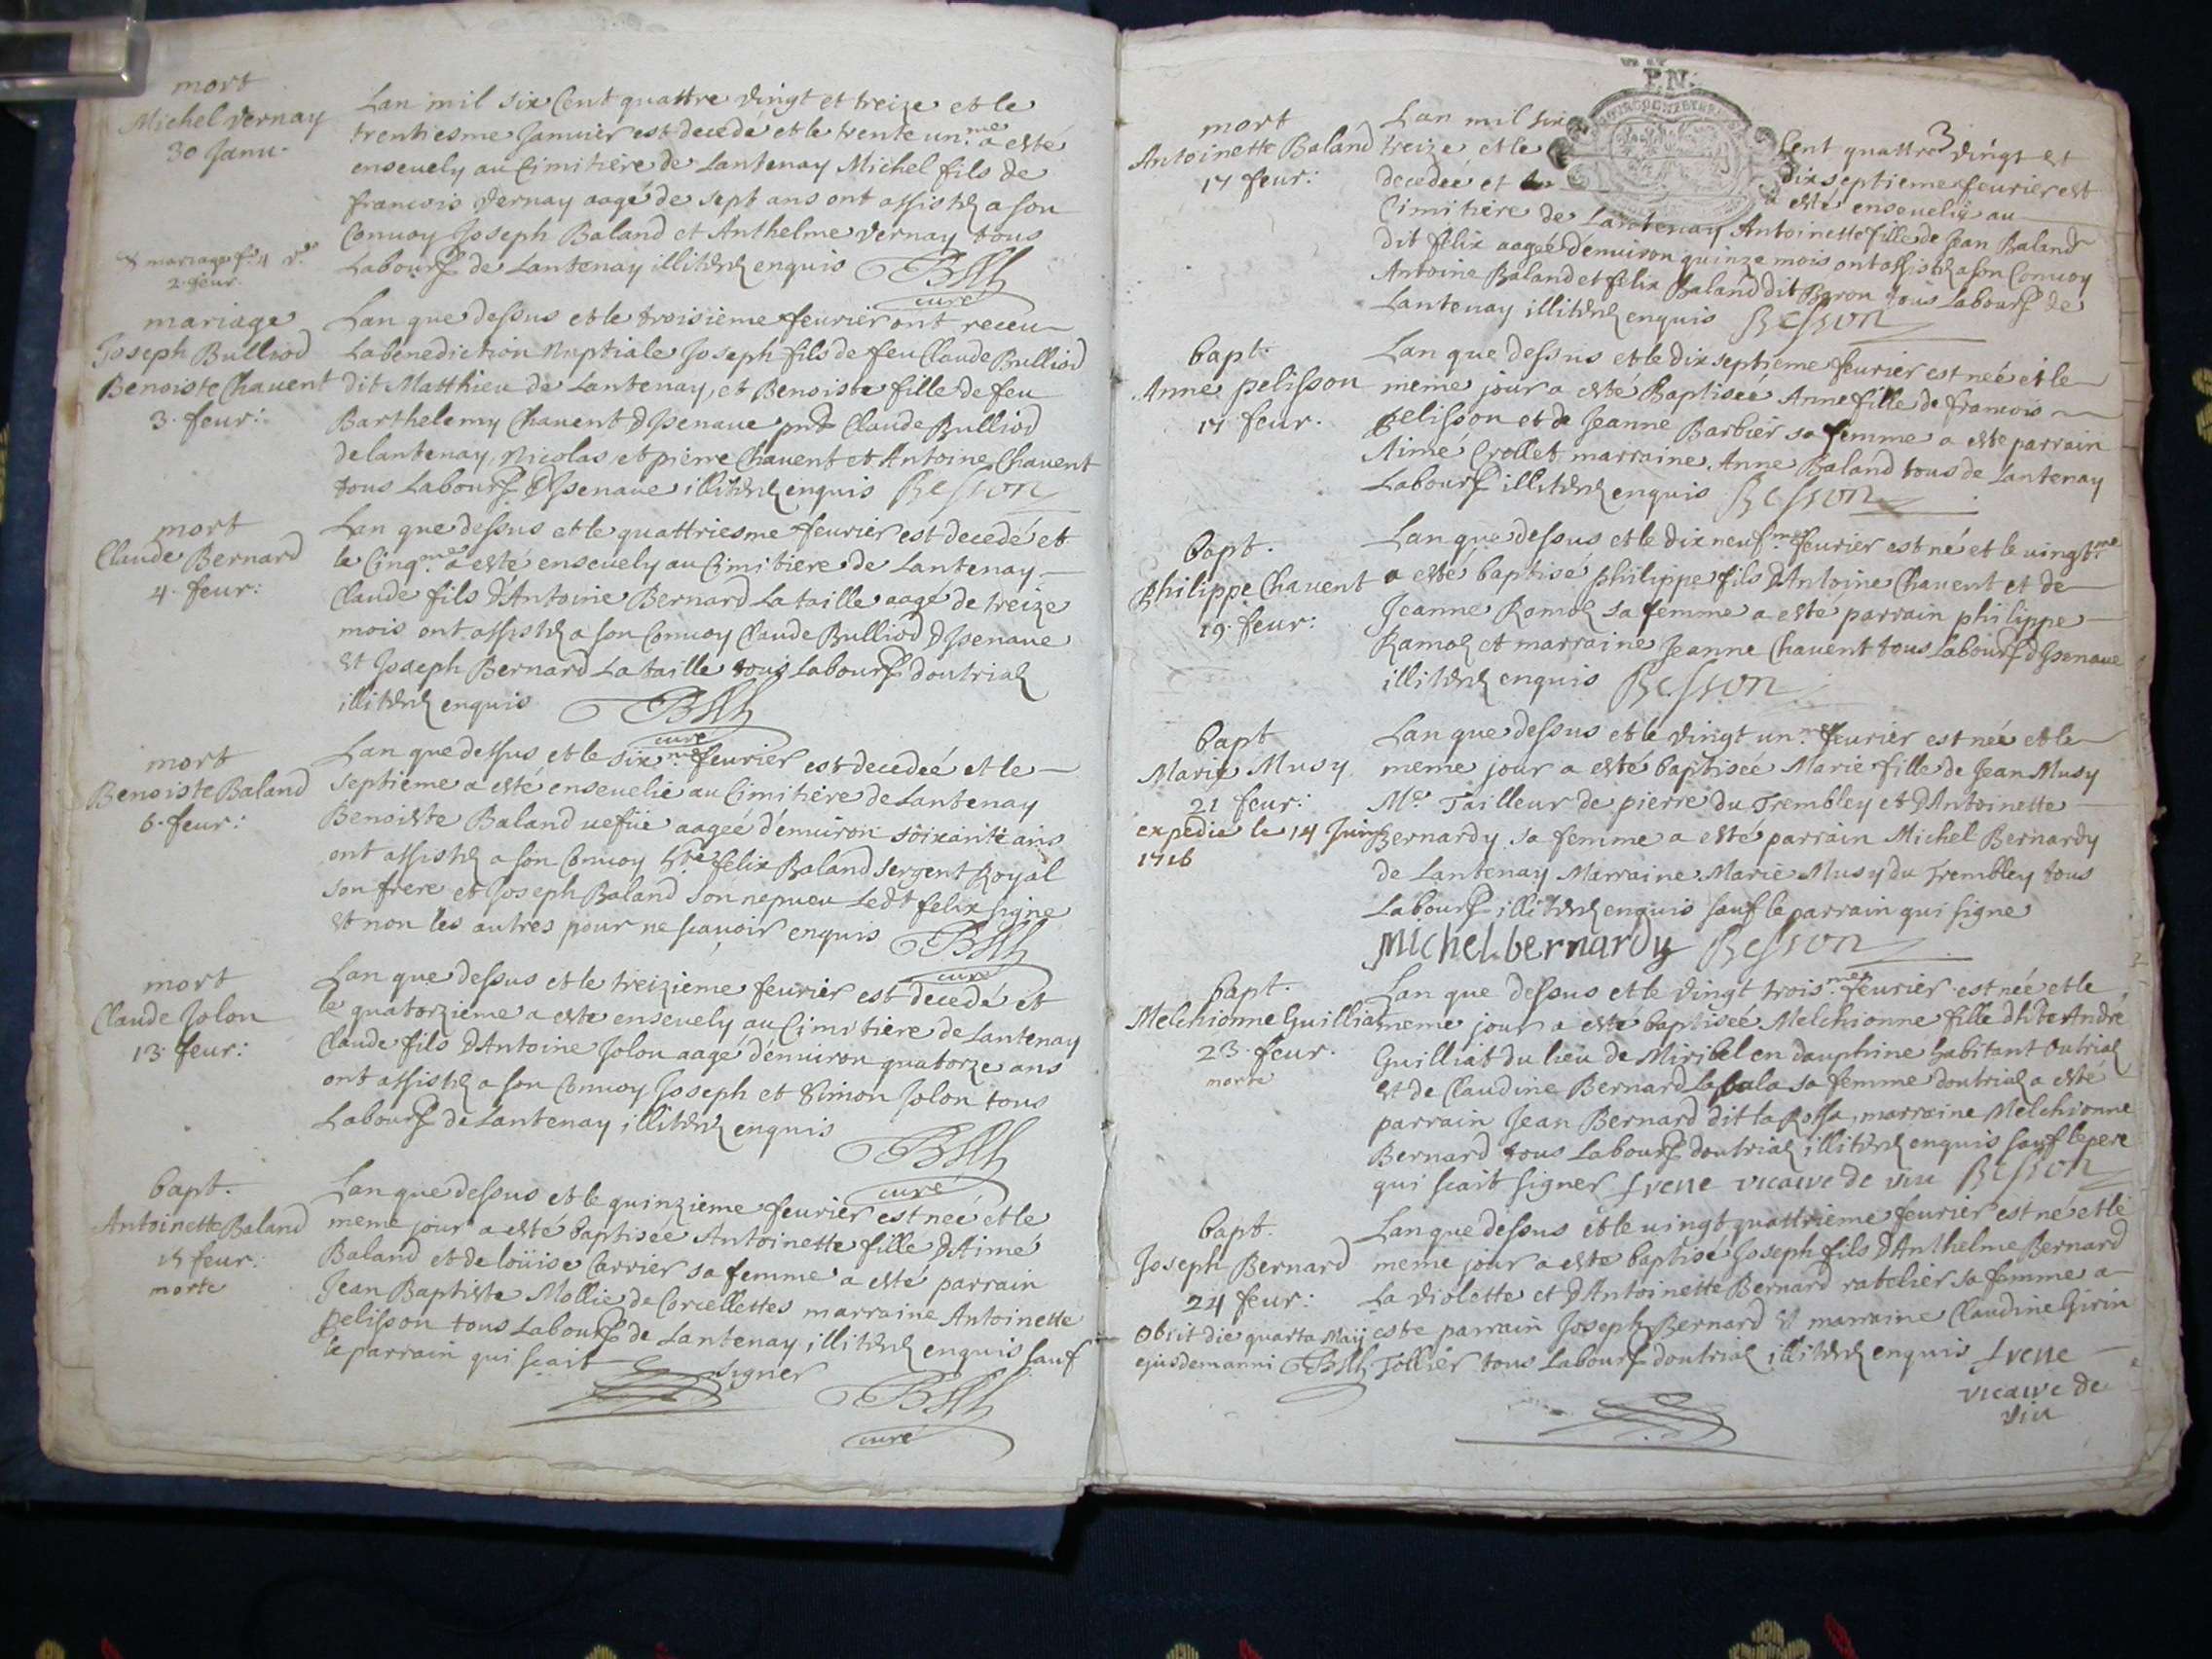 mort
Michel Vernay
30 Janu.
Lan mil six Cent quattre vingt et treize et le
trentiesme Januier est decedé et le trente un.me a esté
enseuely au Cimitiere de Lantenay Michel fils de
francois Vernay aagé de sept ans ont assisté a son
Conuoy Joseph Baland et Anthelme Vernay tous
Labours de Lantenay illiterés enquis
curé
mariage
2. feur.
mariage
Joseph Bulliod
Benoiste Chauent
3. feur:
Lan que dessus et le troisieme feurier ont receu
La benediction Nuptiale Joseph fils de feu Claude Bulliod
dit Matthieu de Lantenay, et Benoiste fille de feu
Barthelemy Chauent d'Isenaue pnt Claude Bulliod
de lantenay, Nicolas et pierre Chauent et Antoine Chauent
tous Labours d'Isenaue illiterés enquis Besson
mort
Claude Bernard
4. feur:
Lan que dessus et le quattriesme feurier est decedé et
le Cinq.me a esté enseuely au Cimitiere de Lantenay
Claude fils d'Antoine Bernard La taille aagé de treize
mois ont assisté a son Conuoy Claude Bulliod d'Isenaue
et Joseph Bernard La taille tous Labours doutriaz
illiterés enquis
curé
mort
Benoiste Baland
6. feur:
Lan que dessus et le six.me feurier est decedeé et le
septieme a esté enseuelie au Cimitiere de Lantenay
Benoiste Baland uefue aageé d'enuiron soixante ans
ont assisté a son Conuoy felix Baland sergent Royal
son frere et Joseph Baland son nepueu Ledt felix signe
et non les autres pour ne scauoir enquis
curé
mort
Claude Jolon
13. feur:
Lan que dessus et le treizieme feurier est decedé et
le quatorzieme a esté enseuely au Cimitiere de Lantenay
Claude fils d'Antoine Jolon aagé d'enuiron quatorze ans
ont assisté a son Conuoy Joseph et Simon Jolon tous
Labours de Lantenay illiterés enquis
curé
bapt.
Antoinette Baland
15 feur:
morte
Lan que dessus et le quinzieme feurier est neé et le
meme jour a esté baptiseé Antoinette fille d'Aimé
Baland et de loüise Carrier sa femme a esté parrain
Jean Baptiste Mollie de Corcellettes marraine Antoinette
pelisson tous Labours de Lantenay illiterés enquis sauf
le parrain qui scait signer
curé
P.N.
3
mort
Antoinette Baland
17 feur:
Lan mil six Cent quattre vingt et
treize et le dix septieme feurier est
decedeé et a esté enseuelie au
Cimitiere de Lantenay Antoinette fille de Jean Baland
dit felix aageé d'enuiron quinze mois ont assisté a son Conuoy
Antoine Baland et felix Baland dit Baron tous Labours de
Lantenay illiterés enquis Besson
bapt.
Anne pelisson
17 feur.
Lan que dessus et le dix septieme feurier est neé et le
meme jour a esté Baptiseé Anne fille de francois
pelisson et de Jeanne Barbier sa femme a esté parrain
Aimé Crollet marraine Anne Baland tous de Lantenay
Labours illiterés enquis Besson
bapt.
Philippe Chauent
19. feur:
Lan que dessus et le dix neuf.me feurier est né et le uingt.me
a esté baptisé philippe fils d'Antoine Chauent et de
Jeanne Ramoz sa femme a esté parrain philippe
Ramoz et marraine Jeanne Chauent tous Labours d'Isenaue
illiterés enquis Besson
bapt
Marie Musy
21 feur:
expedié le 14 Juin
1716
Lan que dessus et le vingt un.me feurier est neé et le
meme jour a esté baptiseé Marie fille de Jean Musy
Me Tailleur de pierre du Trembley et d'Antoinette
Bernardy sa femme a esté parrain Michel Bernardy
de Lantenay Marraine Marie Musy du Trembley tous
Labours illiterés enquis sauf le parrain qui signe
Michel bernardy Besson
bapt.
Melchionne Guilliat
23. feur.
morte
Lan que dessus et le vingt trois.me feurier est neé et le
meme jour a esté baptiseé Melchionne fille d'hte André
Guilliat du lieu de Miribel en dauphine habitant Outriaz
et de Claudine Bernard sa femme doutriaz a esté
parrain Jean Bernard dit la Rossa, marraine Melchionne
Bernard tous Labours doutriaz illiterés enquis sauf le pere
qui scait signer frene vicaire de viu Besson
bapt.
Joseph Bernard
24 feur:
Obiit die quarta Maij
ejusdem anni
Lan que dessus et le uingt quattrieme feurier est né et le
meme jour a esté baptisé Joseph fils d'Anthelme Bernard
La Violette et d'Antoinette Bernard ratelier sa femme a
esté parrain Joseph Bernard et marraine Claudine Girin
Tollier tous Labours doutriaz illiterés enquis frene
vicaire de
viu